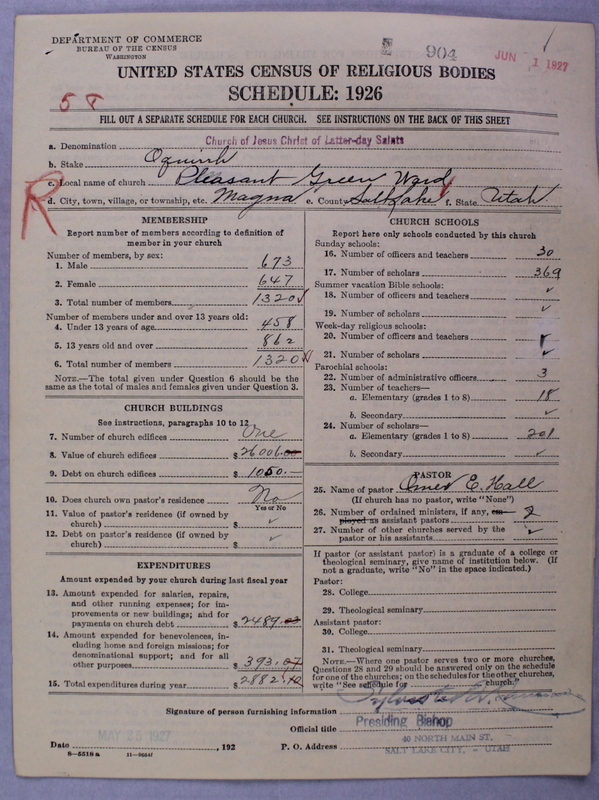 DEPARTMENT OF COMMERCE
BUREAU OF THE CENSUS
WASHINGTON
904
JUN 1 1927
UNITED STATES CENSUS OF RELIGIOUS BODIES
SCHEDULE: 1926
58
FILL OUT A SEPARATE SCHEDULE FOR EACH CHURCH. SEE INSTRUCTIONS ON THE BACK OF THIS SHEET
a. Denomination Church of Jesus Christ of Latter-day Saints
b. Stake Oquirrh
c. Local name of church Pleasant Green Ward
R
d. City, town, village, or township, etc. Magna e. County Salt Lake f. State Utah
MEMBERSHIP
Report number of members according to definition of
member in your church
Number of members, by sex:
1. Male 673
2. Female 647
3. Total number of members 1320
Number of members under and over 13 years old:
4. Under 13 years of age 458
5. 13 years old and over 862
6. Total number of members 1320
NOTE.—The total given under Question 6 should be the
same as the total of males and females given under Question 3.
CHURCH BUILDINGS
See instructions, paragraphs 10 to 12
7. Number of church edifices One
8. Value of church edifices $ 26006.00
9. Debt on church edifices $ 1050.—
10. Does church own pastor's residence No
Yes or No
11. Value of pastor's residence (if owned by
church) $ ✓
12. Debt on pastor's residence (if owned by
church) $ ✓
EXPENDITURES
Amount expended by your church during last fiscal year
13. Amount expended for salaries, repairs,
and other running expenses; for im-
provements or new buildings; and for
payments on church debt $ 2489.03
14. Amount expended for benevolences, in-
cluding home and foreign missions; for
denominational support; and for all
other purposes $ 393.07
15. Total expenditures during year $ 2882.10
CHURCH SCHOOLS
Report here only schools conducted by this church
Sunday schools:
16. Number of officers and teachers 30
17. Number of scholars 369
Summer vacation Bible schools:
18. Number of officers and teachers ✓
19. Number of scholars ✓
Week-day religious schools:
20. Number of officers and teachers
21. Number of scholars ✓
Parochial schools:
22. Number of administrative officers 3
23. Number of teachers—
a. Elementary (grades 1 to 8) 18
b. Secondary ✓
24. Number of scholars—
a. Elementary (grades 1 to 8) 201
b. Secondary ✓
PASTOR
25. Name of pastor E. Hall
(If church has no pastor, write "None")
26. Number of ordained ministers, if any, em-
ployed as assistant pastors 2
27. Number of other churches served by the
pastor or his assistants ✓
If pastor (or assistant pastor) is a graduate of a college or
theological seminary, give name of institution below. (If
not a graduate, write "No" in the space indicated.)
Pastor:
28. College
29. Theological seminary
Assistant pastor:
30. College
31. Theological seminary
NOTE.—Where one pastor serves two or more churches,
Questions 28 and 29 should be answered only on the schedule
for one of the churches; on the schedules for the other churches,
write "See schedule for church."
Signature of person furnishing information
Official title Presiding Bishop
Date MAY 25 1927, 192 P. O. Address 40 NORTH MAIN ST.
SALT LAKE CITY, - UTAH
8—5518a